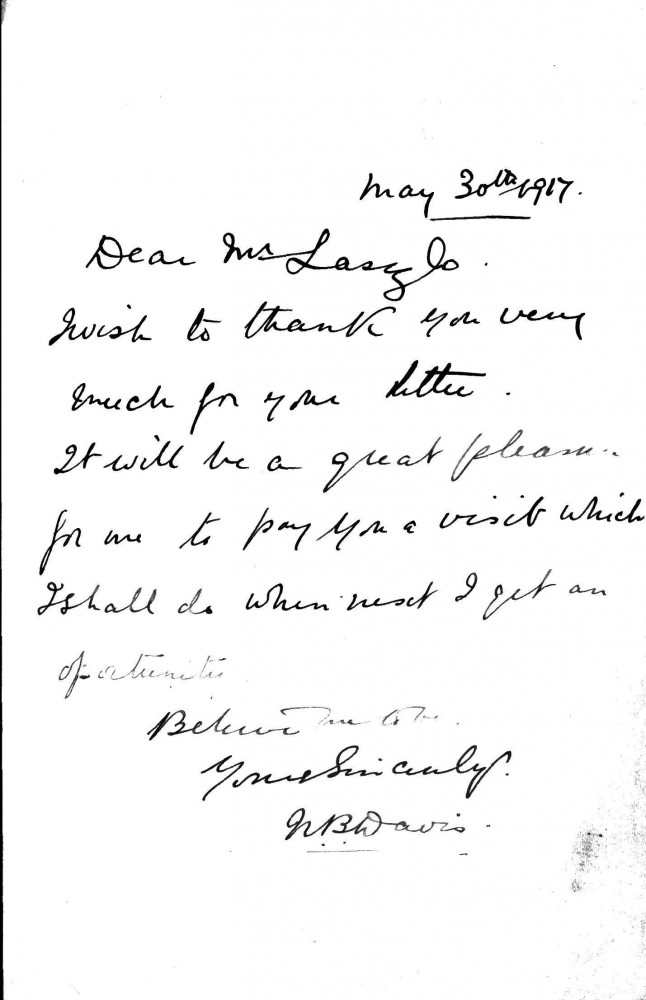 May 30th 1917.
Dear Mr Laszlo.
I wish to thank you very
much for your letter.
It will be a great pleasure
for me to pay you a visit which
I shall do when next I get an
oportunity
Believe me to be.
Yours Sincerely.
Davis.